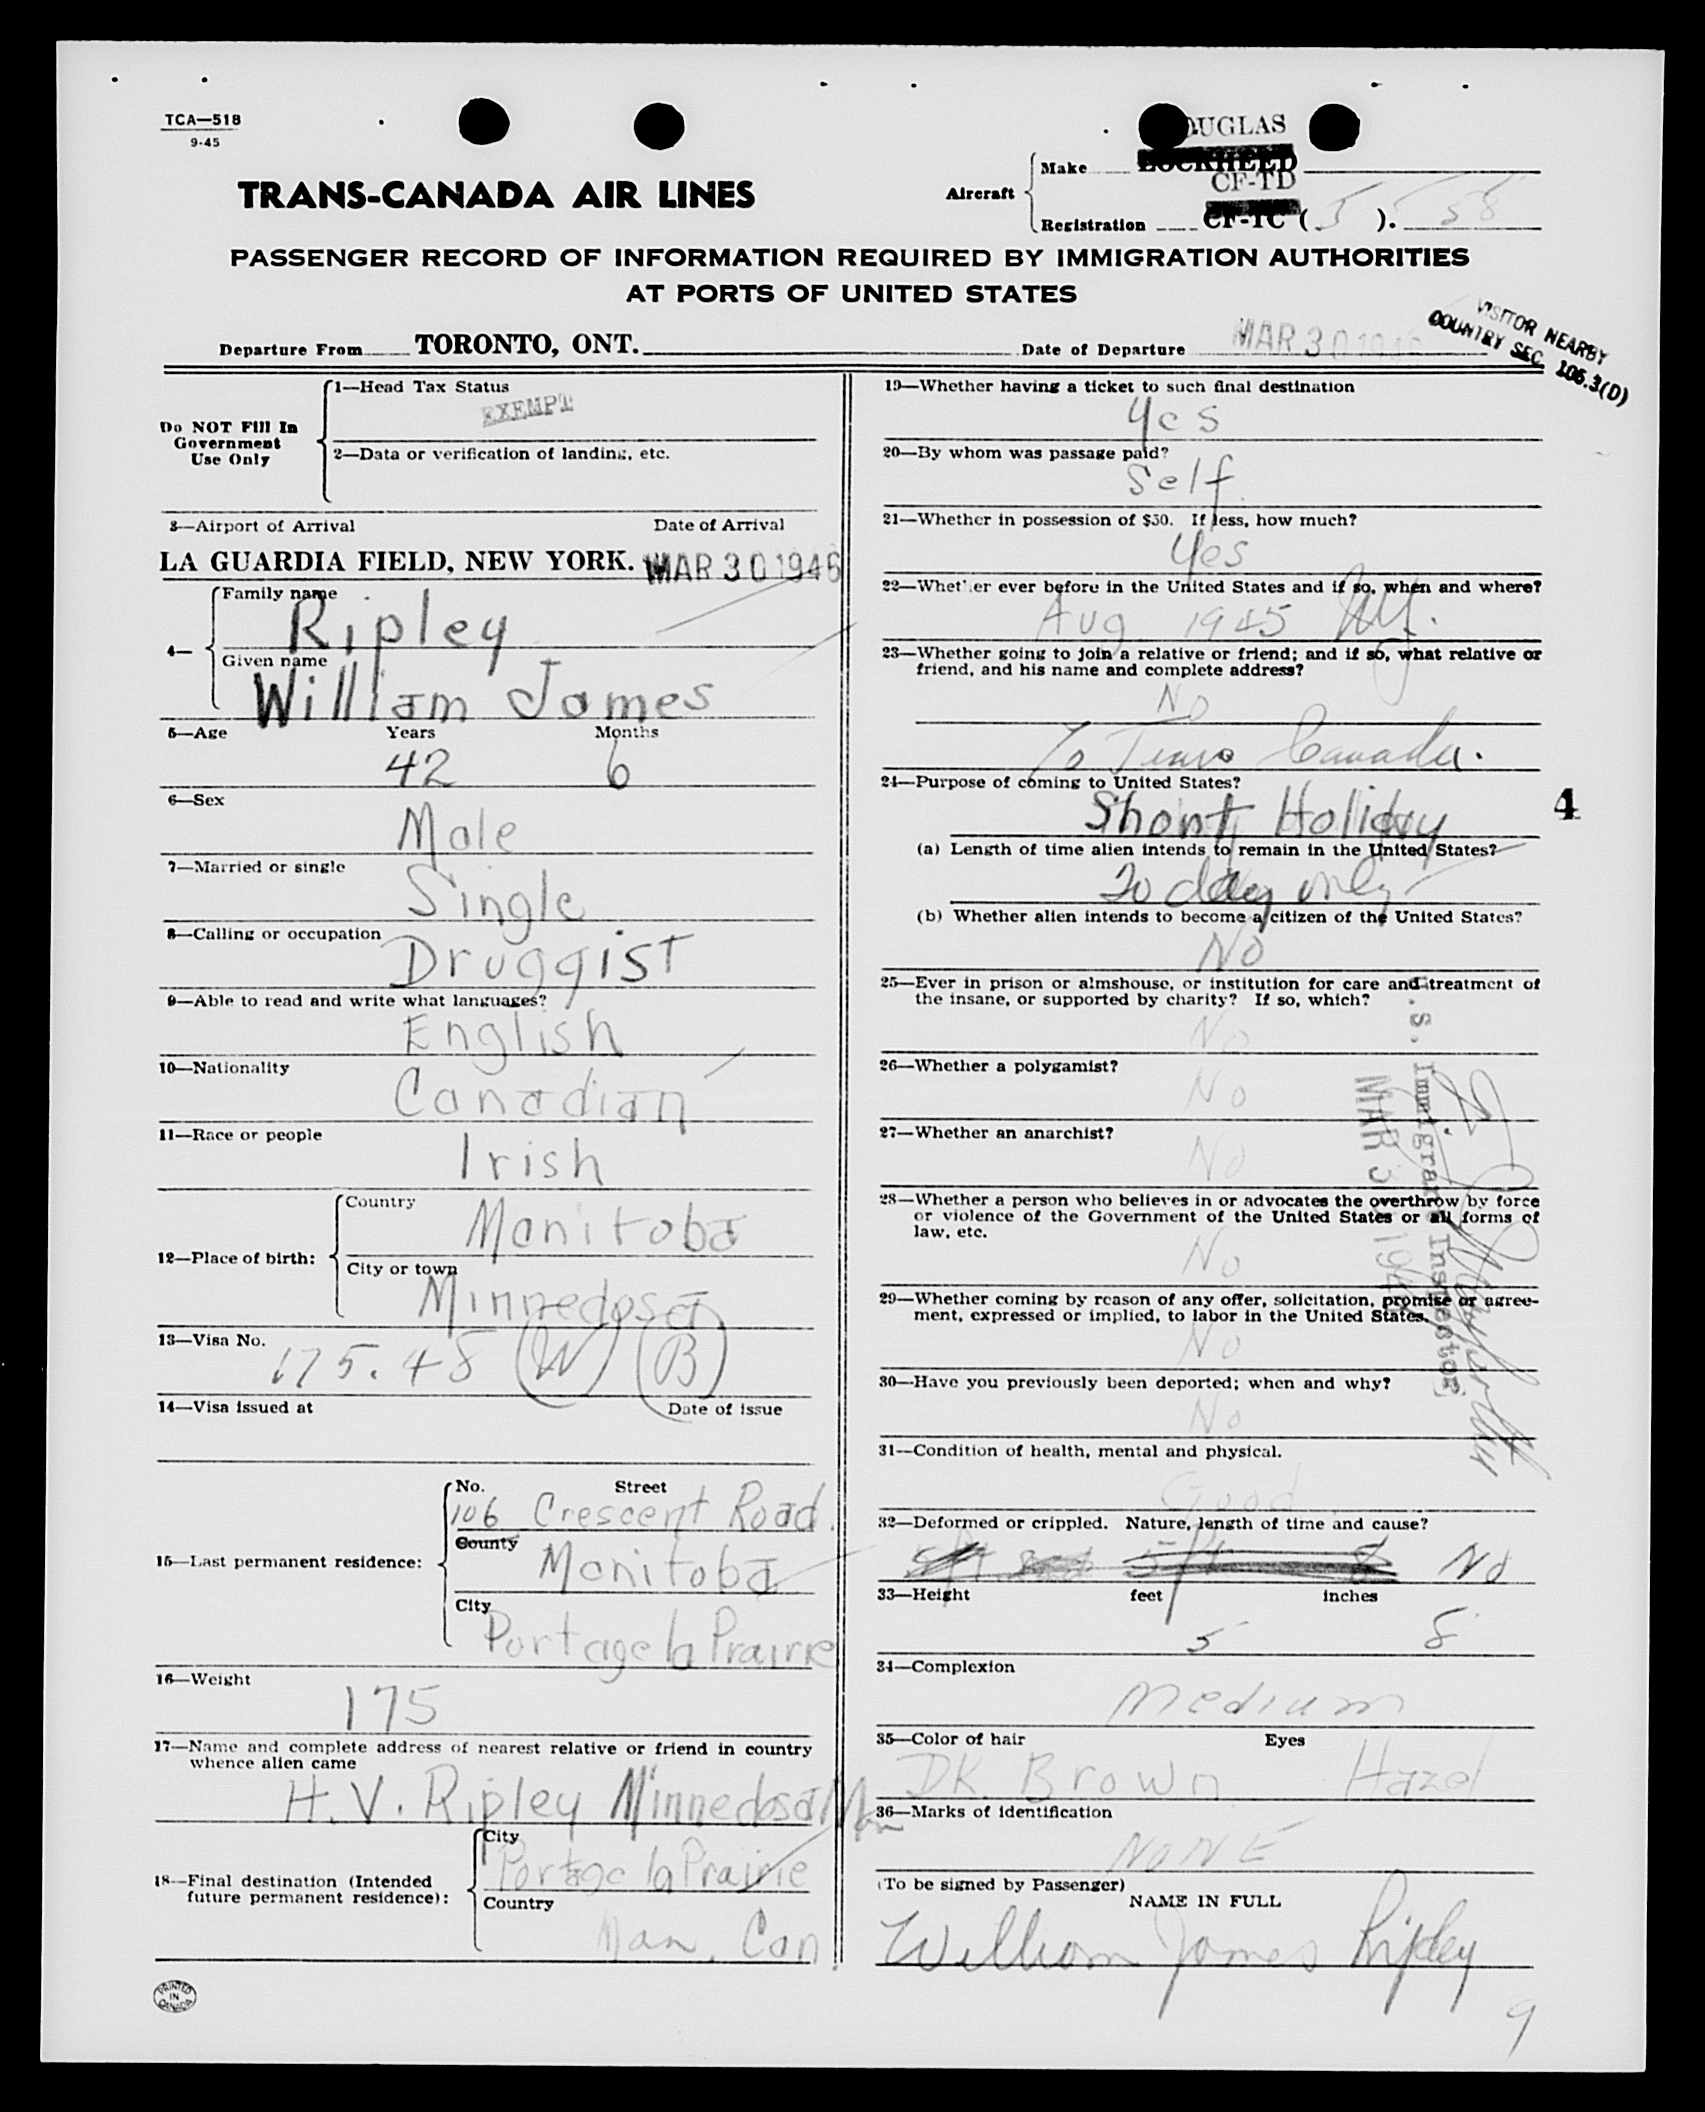 TCA—518
9-45
DOUGLAS
Make LOCKHEED
CF-TD
TRANS-CANADA AIR LINES
Aircraft
Registration CF-TC ( 5 ). 558
PASSENGER RECORD OF INFORMATION REQUIRED BY IMMIGRATION AUTHORITIES
AT PORTS OF UNITED STATES
VISITOR NEARBY
COUNTRY SEC 106.3(D)
Departure From TORONTO, ONT. Date of Departure MAR 30 1946
Do NOT Fill In
Government
Use Only
1—Head Tax Status
EXEMPT
2—Data or verification of landing, etc.
3—Airport of Arrival Date of Arrival
LA GUARDIA FIELD, NEW YORK. MAR 30 1946
4—
Family name
Ripley
Given name
William James
5—Age Years Months
42 6
6—Sex
Male
7—Married or single
Single
8—Calling or occupation
Druggist
9—Able to read and write what languages?
English
10—Nationality
Canadian
11—Race or people
Irish
12—Place of birth:
Country
Manitoba
City or town
Minnedosa
13—Visa No.
175.48 (W) (B)
14—Visa issued at Date of issue
15—Last permanent residence:
No. Street
106 Crescent Road.
County
Manitoba
City
Portage la Prairie
16—Weight
175
17—Name and complete address of nearest relative or friend in country
whence alien came
H.V. Ripley Minnedosa Man
18—Final destination (Intended
future permanent residence):
City
Portage la Prairie
Country
Man. Can.
PRINTED
IN
CANADA
19—Whether having a ticket to such final destination
Yes
20—By whom was passage paid?
Self.
21—Whether in possession of $50. If less, how much?
Yes
22—Whether ever before in the United States and if so, when and where?
Aug 1945 NY.
23—Whether going to join a relative or friend; and if so, what relative or
friend, and his name and complete address?
No
To Trans Canada.
24—Purpose of coming to United States?
Short Holiday
4
(a) Length of time alien intends to remain in the United States?
To day only
(b) Whether alien intends to become a citizen of the United States?
No
25—Ever in prison or almshouse, or institution for care and treatment of
the insane, or supported by charity? If so, which?
No
26—Whether a polygamist?
No
27—Whether an anarchist?
No
28—Whether a person who believes in or advocates the overthrow by force
or violence of the Government of the United States or all forms of
law, etc.
No
29—Whether coming by reason of any offer, solicitation, promise or agree-
ment, expressed or implied, to labor in the United States.
No
30—Have you previously been deported; when and why?
No
U.S. Immigrant Inspector
MAR 30 1946
31—Condition of health, mental and physical.
Good
32—Deformed or crippled. Nature, length of time and cause?
No
33—Height feet inches
5 8
34—Complexion
Medium
35—Color of hair Eyes
DK. Brown Hazel
36—Marks of identification
NONE
(To be signed by Passenger)
NAME IN FULL
William James Ripley
9